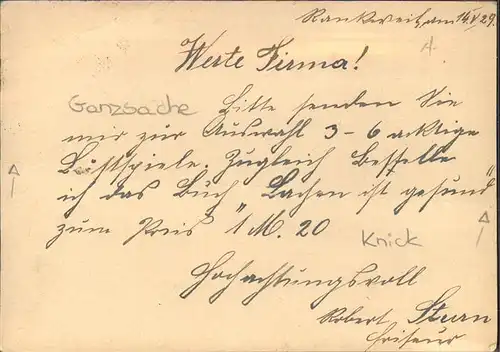 Rankweil, am 14.V.29.
Werte Firma!
Ganzsache Bitte senden Sie
mir zur Auswahl 3-6 acktige
Lustspiele. Zugleich bestelle
ich das Buch „Lachen ist gesund"
zum Preis 1 M. 20
Knick
Hochachtungsvoll
Robert Sturn
Friseur